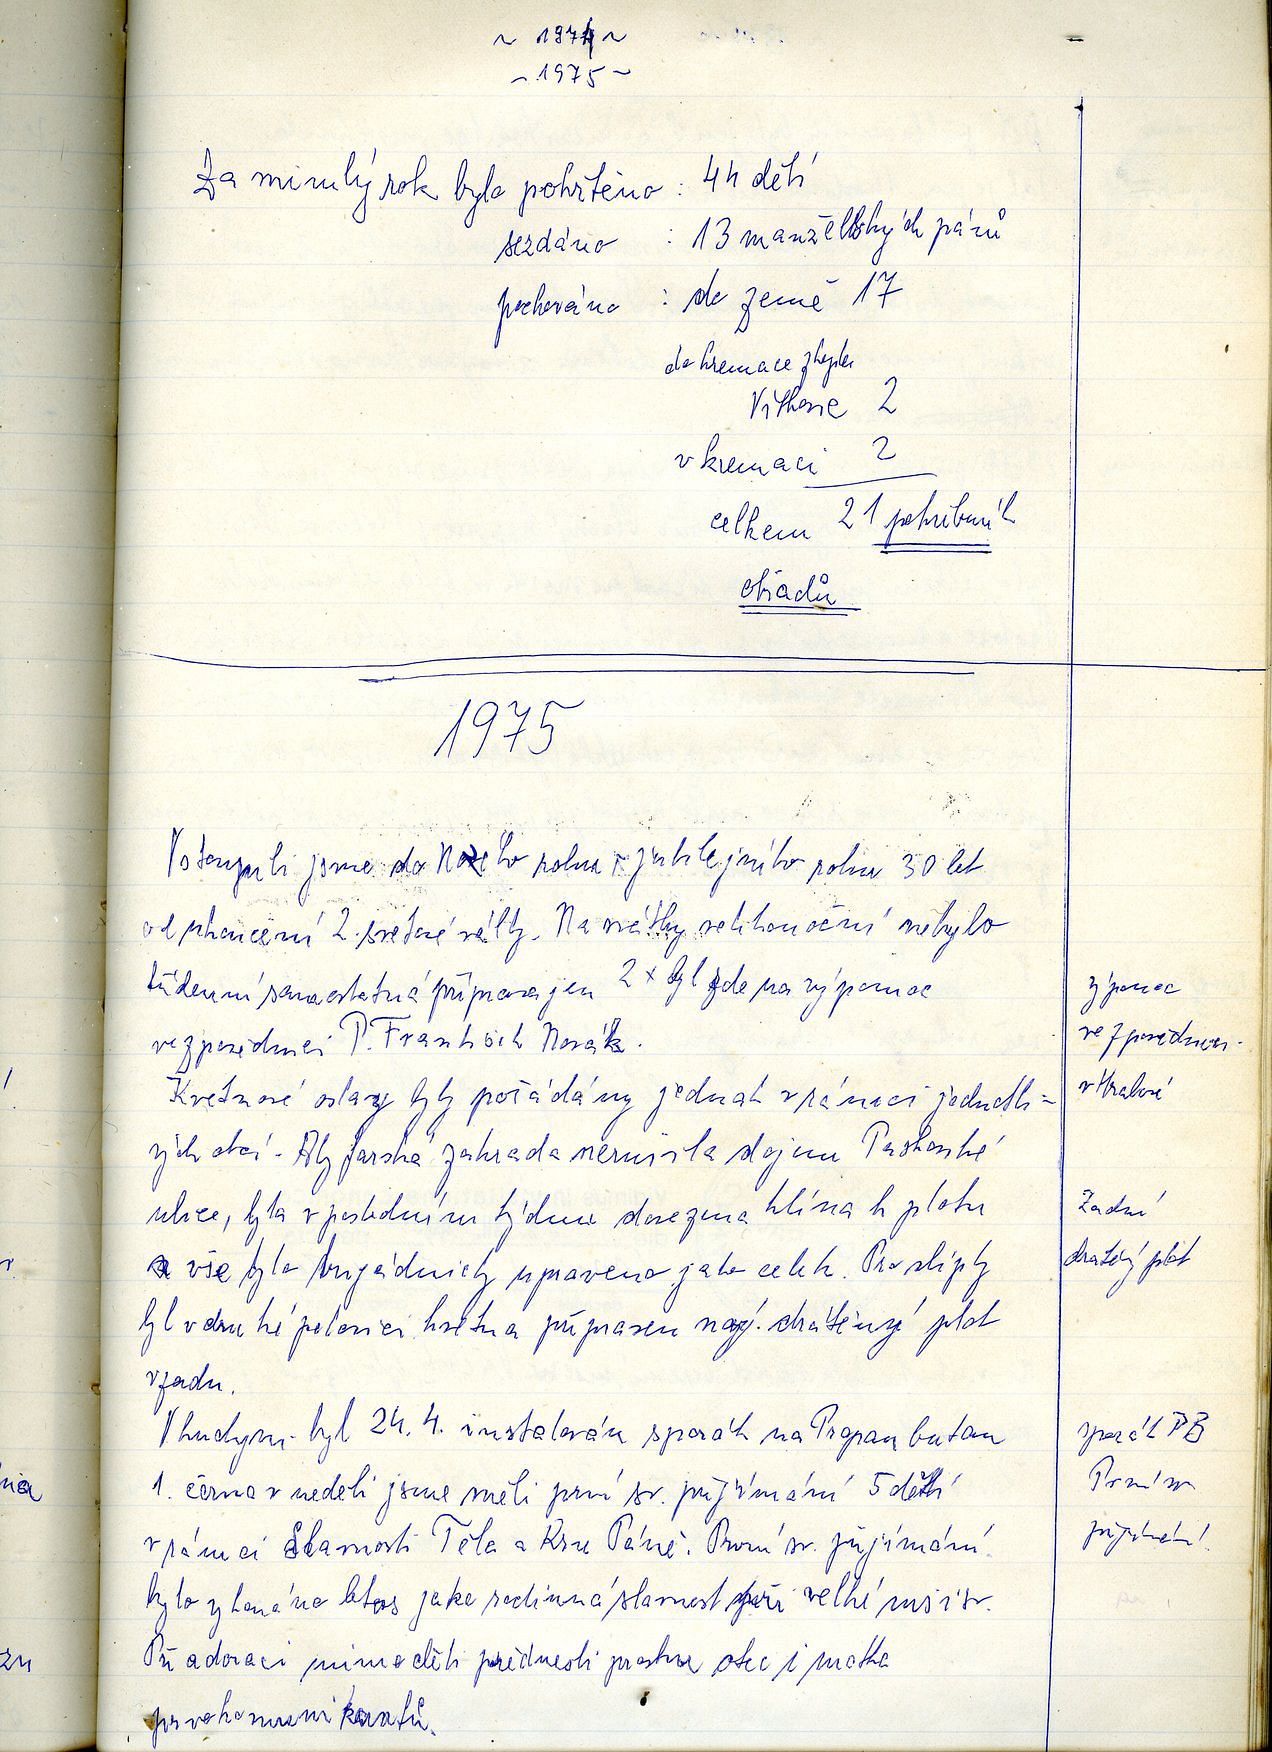 ~ 1974 ~
~ 1975 ~
Za minulý rok bylo pokřtěno : 44 dětí
sezdáno : 13 manželských párů
pochováno : do země 17
do kremace z kaple
Vítkovic 2
v kremaci 2
celkem 21 pohřebních
obřadů
1975
Vstoupili jsme do Nového roku jubilejního roku 30 let
od ukončení 2. světové války. Na svátky velikonoční nebylo
týdenní samostatná příprava jen 2x byl zde na výpomoc
ve zpovědnici P. František Novák.
Květnové oslavy byly pořádány jednak v rámci jednotli=
vých obcí. Aby farská zahrada nerušila dojem Paskovské
ulice, byla v posledním týdnu dovezena hlína k plotu
a vše bylo brigádnicky upraveno jako celek. Pro slípky
byl v druhé polovici května připraven nový drátěný plot
vzadu.
V kuchyni byl 24. 4. instalován sporák na Propan butan
1. června v neděli jsme měli první sv. přijímání 5 dětí
v rámci Slavnosti Těla a Krve Páně. První sv. přijímání
bylo vykonáno letos jako rodinná slavnost při velké mši sv.
Při adoraci mimo děti přednesli prosbu otec i matka
prvokomunikantů.
výpomoc
ve zpovědnici
v Hrabové
Zadní
drátěný plot
sporák PB
První sv.
přijímání